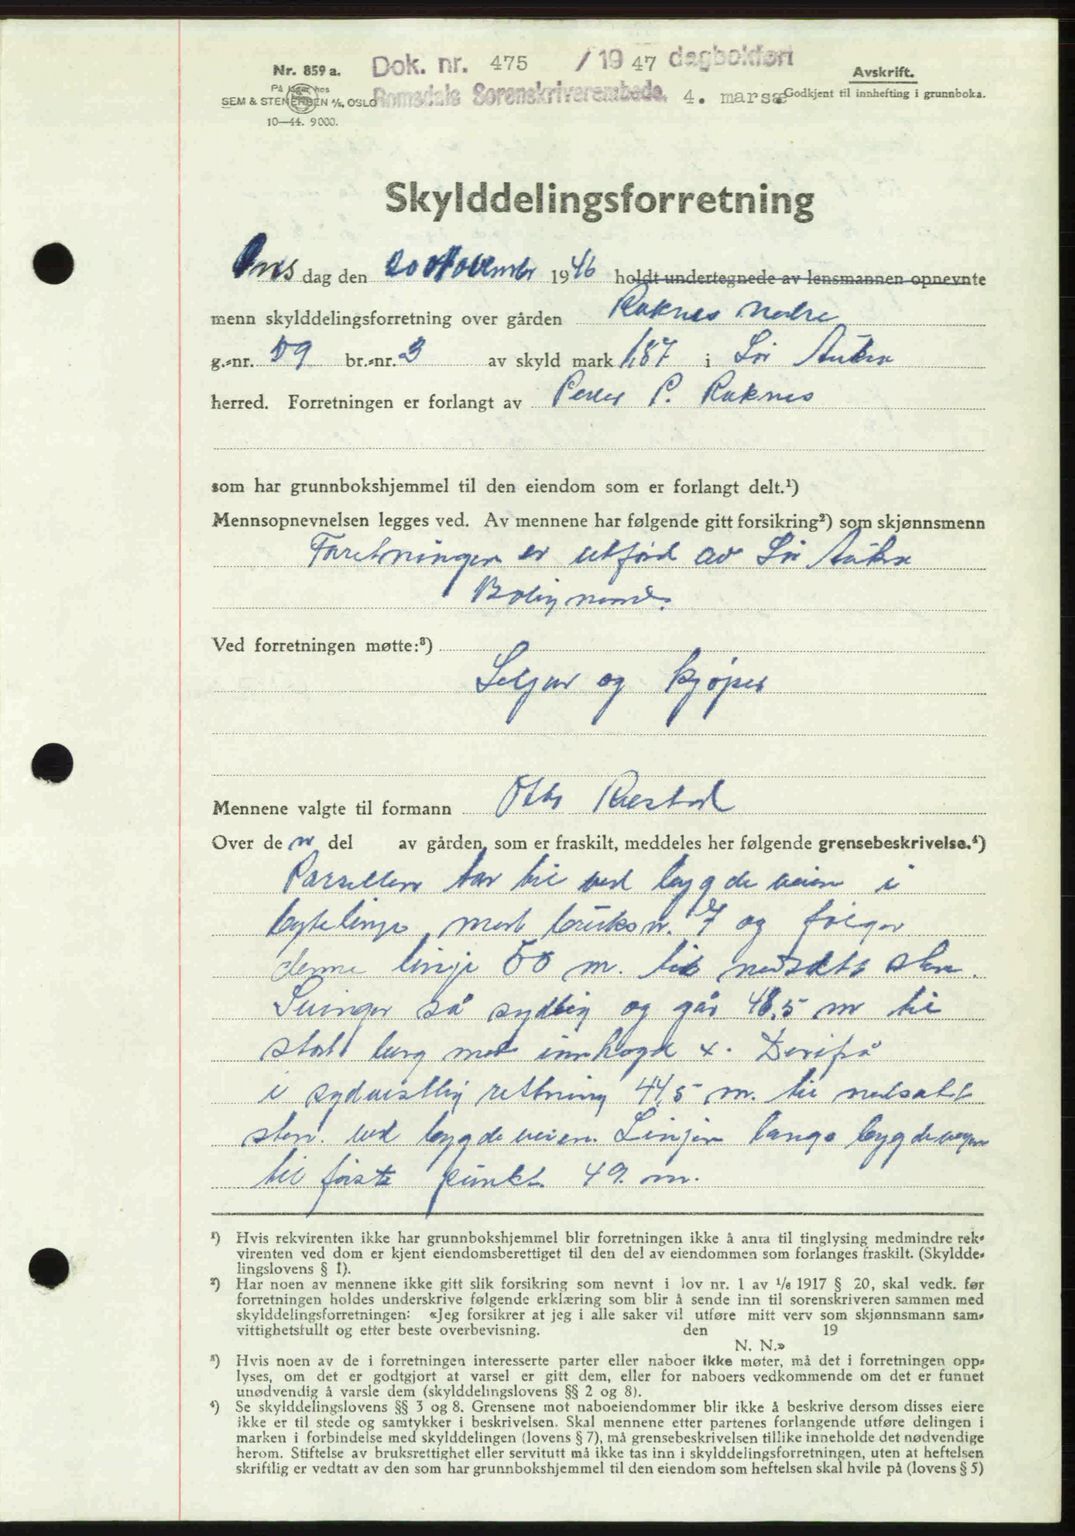 Nr. 859 a.
SEM & STENERSEN A/S, OSLO
10—44. 9000.
Dok. nr. 475 / 19 47 dagbokført
Romsdals Sorenskriverembede. 4. mars
Avskrift.
Godkjent til innhefting i grunnboka.
Skylddelingsforretning
Ons dag den 20 November 1946 holdt undertegnede av lensmannen opnevnte
menn skylddelingsforretning over gården Raknes nedre
g.-nr. 59 br.-nr. 3 av skyld mark 1,87 i Sør Aukra
herred. Forretningen er forlangt av Peder P. Raknes
som har grunnbokshjemmel til den eiendom som er forlangt delt.¹)
Mennsopnevnelsen legges ved. Av mennene har følgende gitt forsikring²) som skjønnsmenn
Forretningen er utført av Sør Aukra
Bolignemd.
Ved forretningen møtte:³)
Selger og kjøper
Mennene valgte til formann Otto Restad
Over de n del av gården, som er fraskilt, meddeles her følgende grensebeskrivelse.⁴)
Parsellen tar til ved bygdeveien i
bytelinje med bruksnr. 7 og følger
denne linje 50 m. til nedsatt sten.
Svinger så sydlig og går 48,5 m til
stort berg med innhogd x. Derifrå
i sydvestlig rettning 44,5 m. til nedsatt
sten ved bygdeveien. Linjen langs bygdeveien
til første punkt 49. m.
¹) Hvis rekvirenten ikke har grunnbokshjemmel blir forretningen ikke å anta til tinglysing medmindre rek-
virenten ved dom er kjent eiendomsberettiget til den del av eiendommen som forlanges fraskilt. (Skyldde-
lingslovens § 1).
²) Har noen av mennene ikke gitt slik forsikring som nevnt i lov nr. 1 av 1/6 1917 § 20, skal vedk. før
forretningen holdes underskrive følgende erklæring som blir å sende inn til sorenskriveren sammen med
skylddelingsforretningen: «Jeg forsikrer at jeg i alle saker vil utføre mitt verv som skjønnsmann sam-
vittighetsfullt og etter beste overbevisning. den 19
N. N.»
³) Hvis noen av de i forretningen interesserte parter eller naboer ikke møter, må det i forretningen opp-
lyses, om det er godtgjort at varsel er gitt dem, eller for naboers vedkommende om det er funnet
unødvendig å varsle dem (skylddelingslovens §§ 2 og 8).
⁴) Se skylddelingslovens §§ 3 og 8. Grensene mot naboeiendommer blir ikke å beskrive dersom disses eiere
ikke er til stede og samtykker i beskrivelsen. Skal mennene etter partenes forlangende utføre delingen i
marken i forbindelse med skylddelingen (lovens § 7), må grensebeskrivelsen tillike inneholde det nødvendige
herom. Stiftelse av bruksrettighet eller servitutt må ikke tas inn i skylddelingsforretningen, uten at heftelsen
skriftlig er vedtatt av den som har grunnbokshjemmel til den eiendom som heftelsen skal hvile på (lovens § 5)